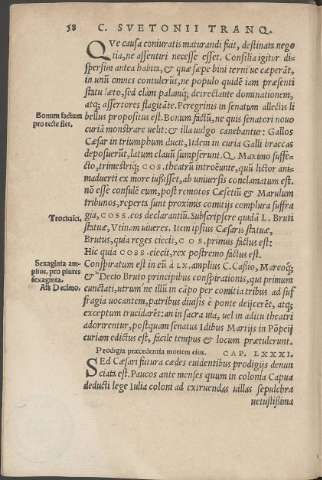 58 C. SVETONII TRANQ.
QVe causa coniuratis maturandi fuit, destinata nego
tia, ne assentiri necesse esset. Consilia igitur di-
spersim antea habita, & quæ sæpe bini terni ue cæperāt,
in unū omnes contulerūt, ne populo quidē iam præsenti
statu læto, sed clàm palamq; detrectante dominationem,
atq; assertores flagitāte. Peregrinis in senatum allectis li
bellus propositus est. Bonum factū, ne quis senatori nouo
curiā monstrare uelit: & illa uulgo canebantur: Gallos
Cæsar in triumphum ducit, Iidem in curia Galli braccas
deposuerūt, latum clauū sumpserunt. Q. Maximo suffe-
cto, trimestriq; COS. theatrū introëunte, quū lictor ani-
maduerti ex more iussisset, ab uniuersis conclamatum est.
nō esse consulē eum, post remotos Cæsetiū & Marulum
tribunos, reperta sunt proximis comitijs complura suffra
gia, COSS. eos declarantiū. Subscripsere quidā L. Bruti
statuæ, Vtinam uiueres. Item ipsius Cæsaris statuæ,
Brutus, quia reges eiecit, COS. primus factus est:
Hic quia COSS. eiecit, rex postremo factus est.
Conspiratum est in eū à LX. amplius C. Cassio, Marcoq;
& Decio Bruto principibus conspirationis, qui primum
cunctati, utrum ne illū in cāpo per comitia tribus ad suf
fragia uocantem, partibus diuisis è ponte deijcerēt, atq;
exceptum trucidarēt: an in sacra uia, uel in aditu theatri
adorirentur, postquam senatus Idibus Martijs in Pōpeij
curiam edictus est, facile tempus & locum prætulerunt.
Prodigia præcedentia mortem eius. CAP. LXXXI.
SEd Cæsari futura cædes euidentibus prodigijs denun
ciata est. Paucos ante menses quum in colonia Capua
deducti lege Iulia coloni ad exiruendas uillas sepulchra
uetustissima
Bonum factum
pro recte fiet.
Trocinici.
Sexaginta am-
plius, pro plures
sexaginta.
Aſi Decimo.